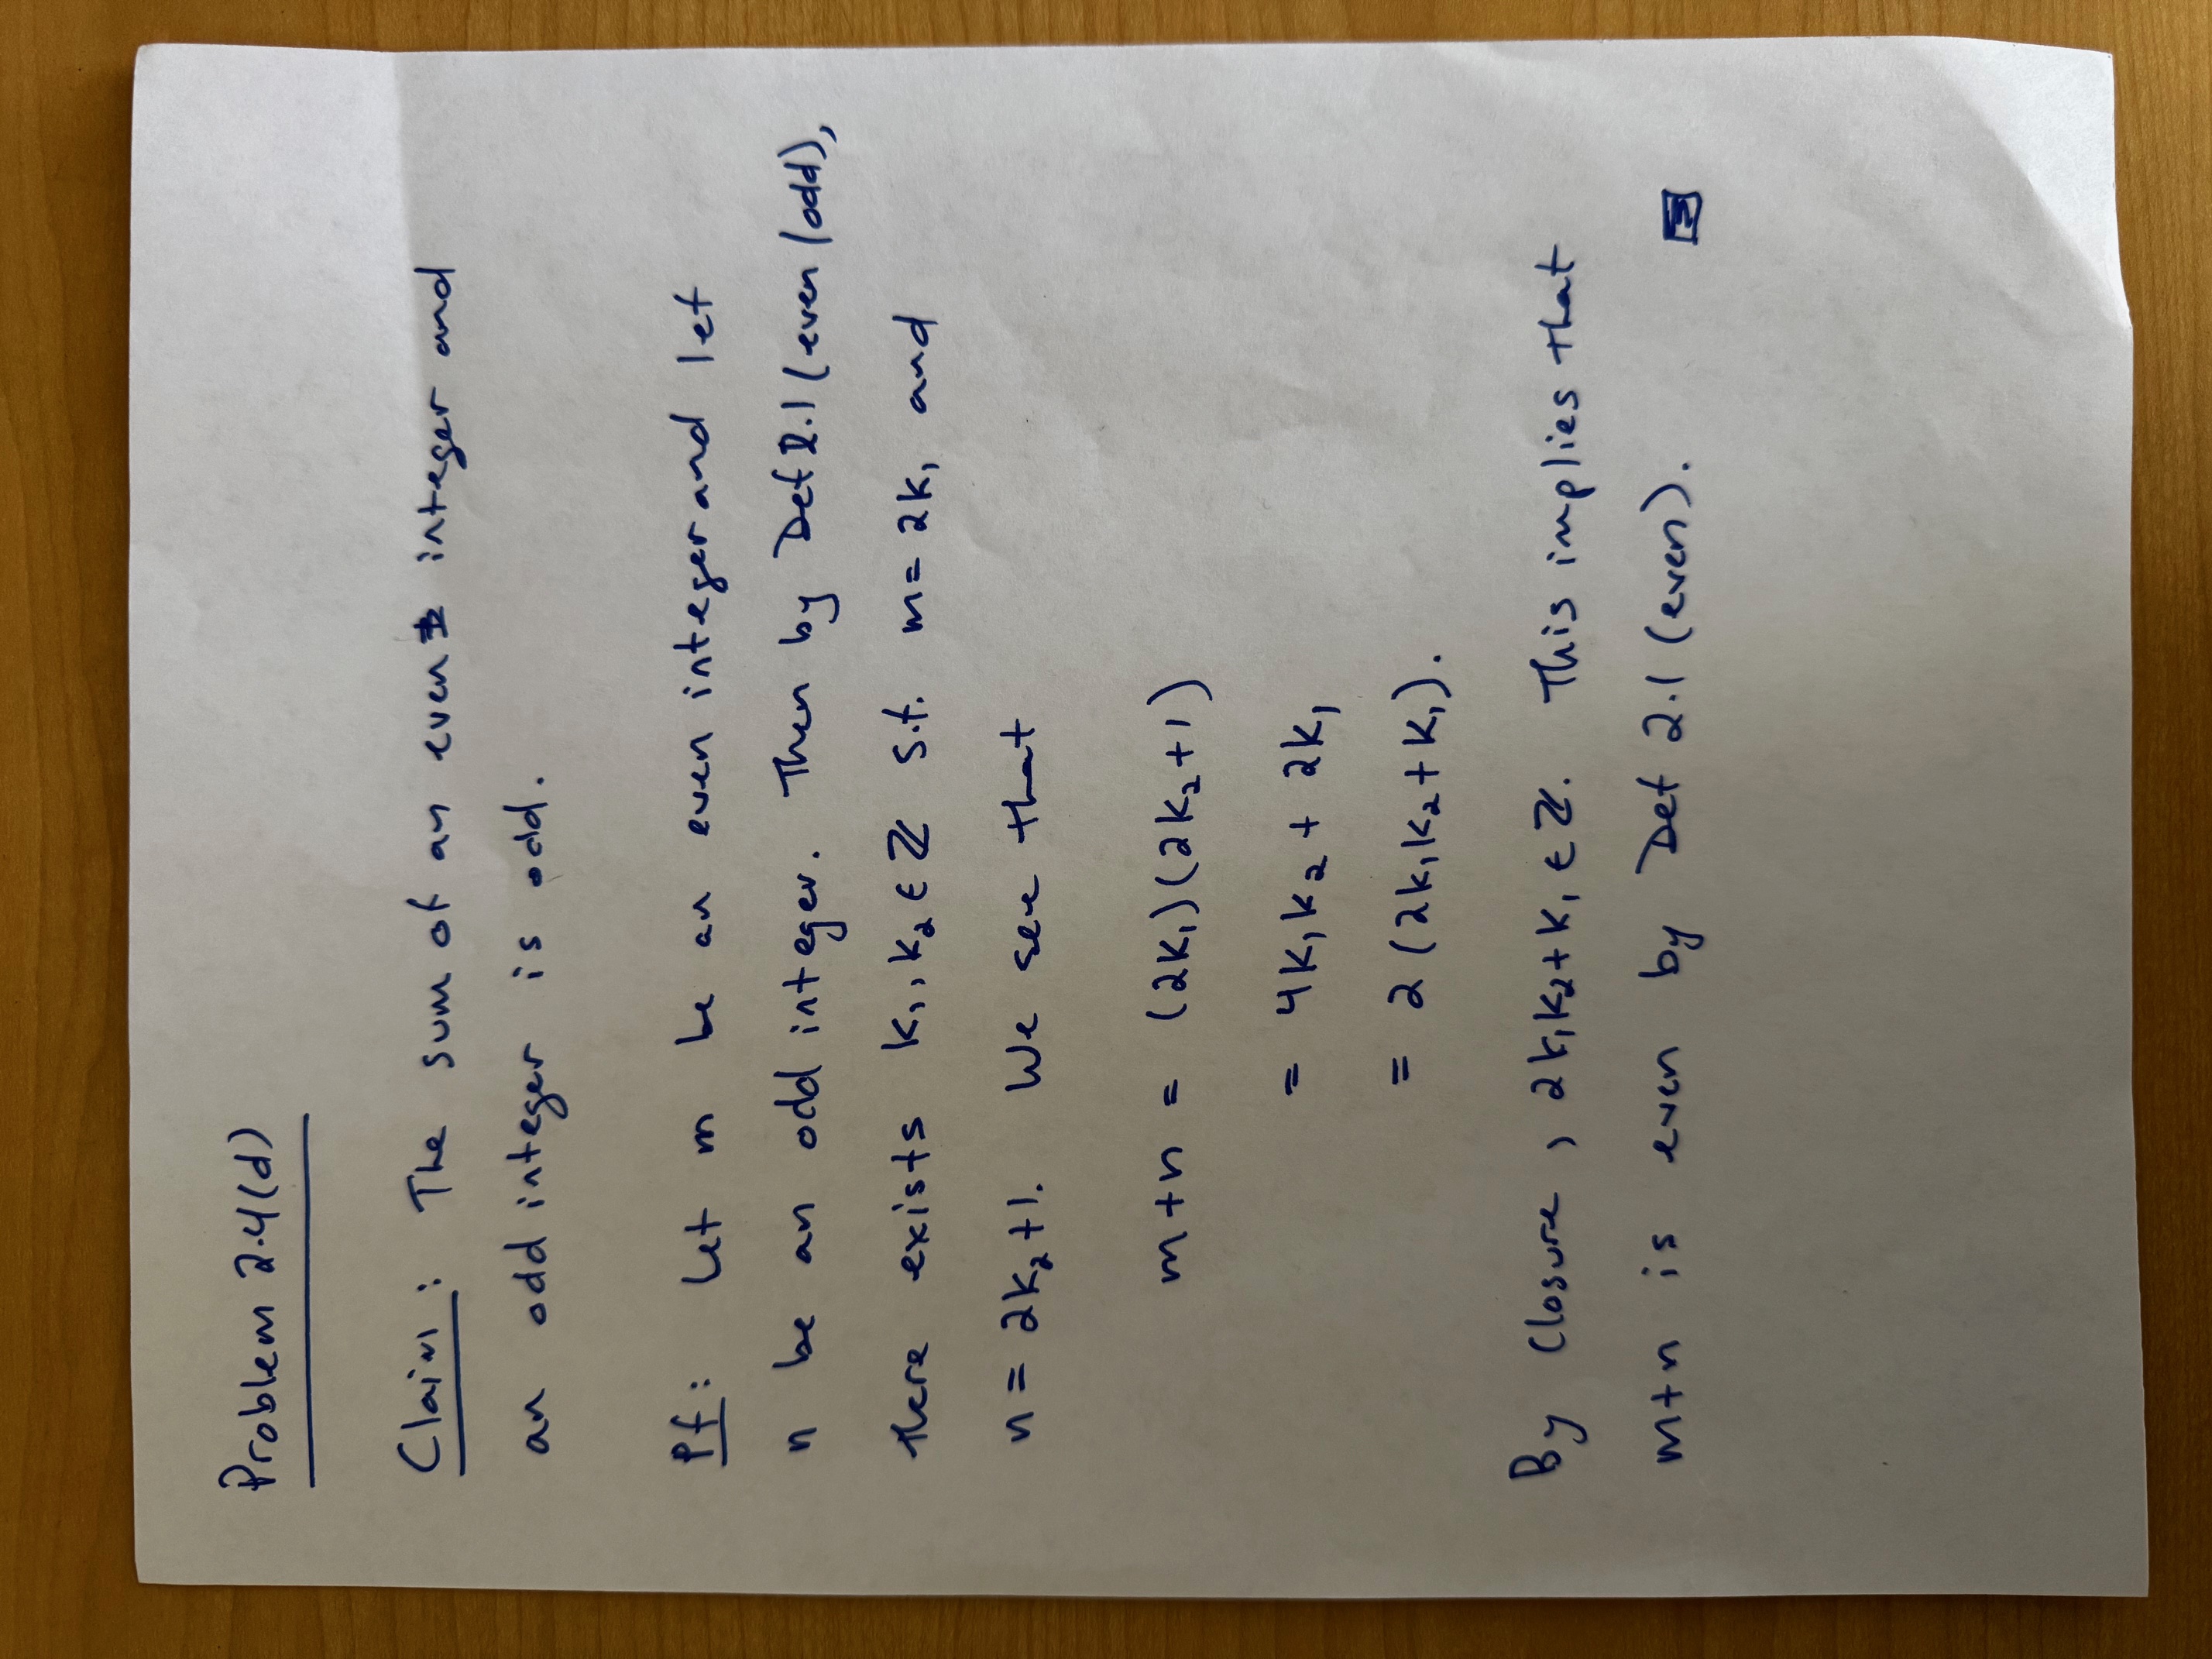 Problem 2.4(d)
Claim: The sum of an even integer and
an odd integer is odd.
Pf: Let m be an even integer and let
n be an odd integer. Then by Def 2.1 (even/odd),
there exists k₁, k₂ ∈ ℤ s.t. m = 2k₁ and
n = 2k₂+1. We see that
m+n = (2k₁)(2k₂+1)
= 4k₁k₂ + 2k₁
= 2(2k₁k₂+k₁).
By closure, 2k₁k₂+k₁ ∈ ℤ. This implies that
m+n is even by Def 2.1 (even).